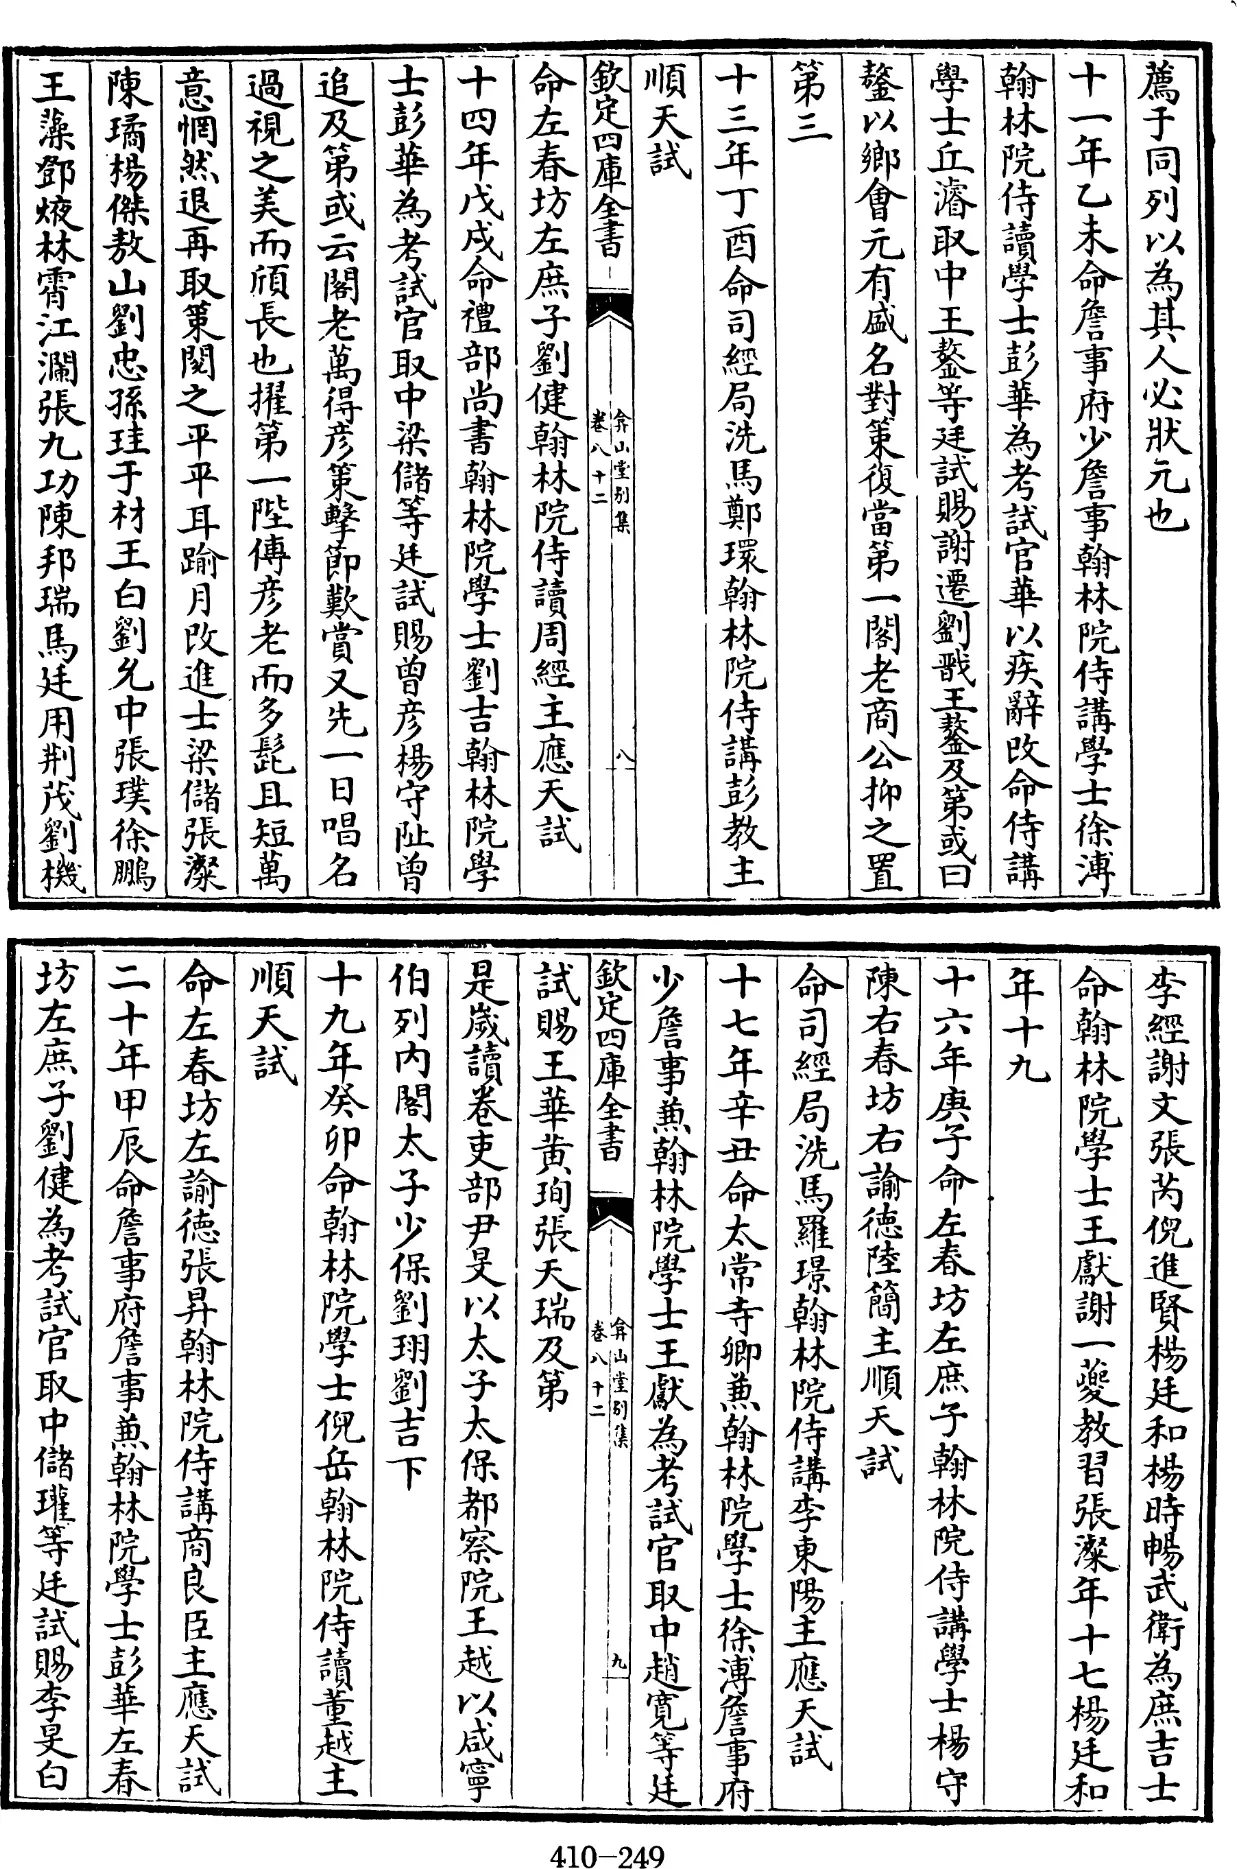 薦于同列以為其人必狀元也
十一年乙未命詹事府少詹事翰林院侍講學士徐溥
翰林院侍讀學士彭華為考試官華以疾辭改命侍講
學士丘濬取中王鏊等廷試賜謝遷劉戩王鏊及第或曰
鏊以鄉會元有盛名對策復當第一閣老商公抑之置
第三
十三年丁酉命司經局洗馬鄭環翰林院侍講彭教主
順天試
欽定四庫全書
弇山堂别集
卷八十二
八
命左春坊左庶子劉健翰林院侍讀周經主應天試
十四年戊戌命禮部尚書翰林院學士劉吉翰林院學
士彭華為考試官取中梁儲等廷試賜曾彦楊守阯曾
追及第或云閣老萬得彦策擊節歎賞又先一日唱名
過視之美而頎長也擢第一陛傳彦老而多髭且短萬
意惘然退再取策閱之平平耳踰月改進士梁儲張澯
陳璚楊傑敖山劉忠孫珪于材王白劉允中張璞徐鵬
王藻鄧焲林霄江瀾張九功陳邦瑞馬廷用荆茂劉機
李經謝文張芮倪進賢楊廷和楊時暢武衛為庶吉士
命翰林院學士王獻謝一夔教習張澯年十七楊廷和
年十九
十六年庚子命左春坊左庶子翰林院侍講學士楊守
陳右春坊右諭德陸簡主順天試
命司經局洗馬羅璟翰林院侍講李東陽主應天試
十七年辛丑命太常寺卿兼翰林院學士徐溥詹事府
少詹事兼翰林院學士王獻為考試官取中趙寛等廷
欽定四庫全書
弇山堂别集
卷八十二
九
試賜王華黄珣張天瑞及第
是歲讀卷吏部尹旻以太子太保都察院王越以咸寧
伯列内閣太子少保劉珝劉吉下
十九年癸卯命翰林院學士倪岳翰林院侍讀董越主
順天試
命左春坊左諭德張昇翰林院侍講商良臣主應天試
二十年甲辰命詹事府詹事兼翰林院學士彭華左春
坊左庶子劉健為考試官取中儲瓘等廷試賜李旻白
410-249